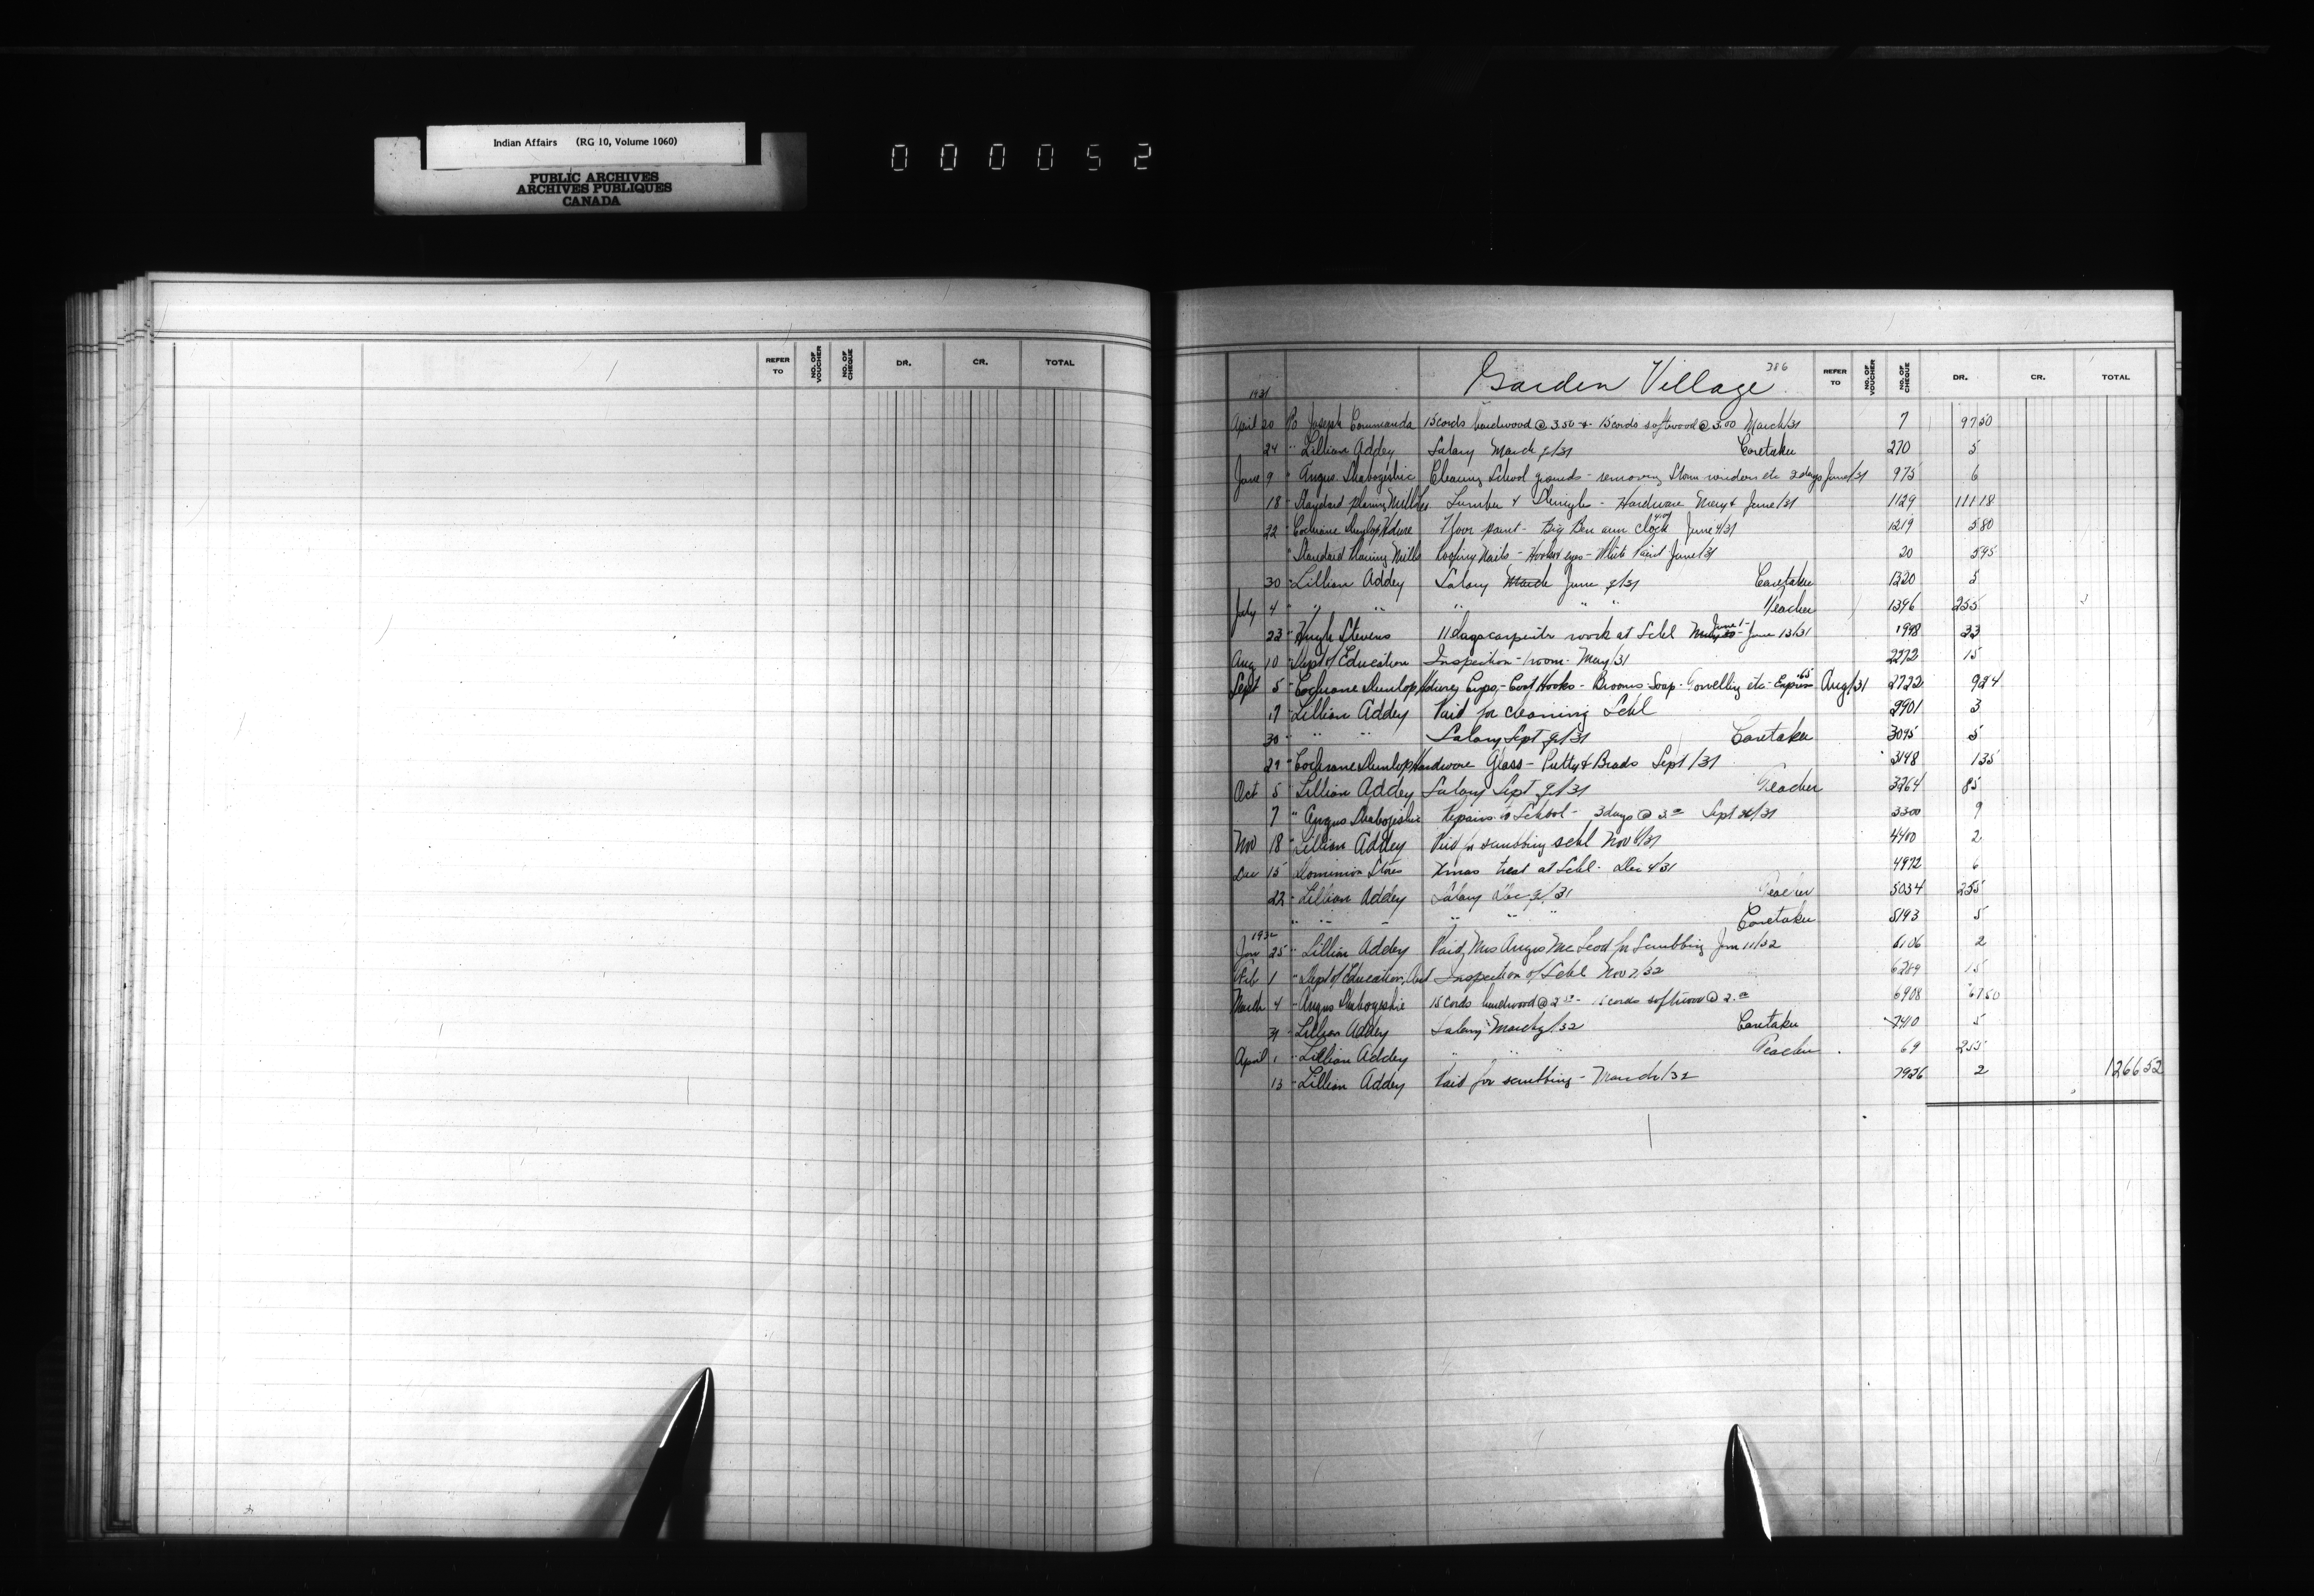 Indian Affairs (RG 10, Volume 1060)
PUBLIC ARCHIVES
ARCHIVES PUBLIQUES
CANADA
000052
REFER TO NO. OF VOUCHER NO. OF CHEQUE DR. CR. TOTAL
Garden Village 386 REFER TO NO. OF VOUCHER NO. OF CHEQUE DR. CR. TOTAL
1931
April 20 To Joseph Commanda 15 cords hardwood @ 3.50 + 15 cords softwood @ 3.00 March/31 7 97 50
24 " Lillian Addey Salary March q/31 Caretaker 270 5
June 9 " Angus Shabogeshic Cleaning School grounds - removing Storm windows etc 2 days June/31 975 6
18 " Standard planing Mills Lumber & Shingles - Hardware May & June/31 1129 111 18
22 " Cochrane Dunlop Hdwre Floor paint - Big Ben alm clock June 4/31 1219 5 80
" Standard Planing Mills Roofing Nails - Hooks & eyes - White Paint June/31 20 5 95
30 " Lillian Addey Salary March June q/31 Caretaker 1320 5
July 4 " " " " " " Teacher 1396 255
23 " Hugh Stevens 11 days carpenter work at Schl June 1 - June 13/31 1998 33
Aug 10 " Dept of Education Inspection - 1 room - May/31 2272 15
Sept 5 " Cochrane Dunlop Hdwre Cups - Coat Hooks - Brooms - Soap - Towelling etc - Express .65 Aug/31 2722 9 24
17 " Lillian Addey Paid for cleaning Schl 2901 3
30 " " " Salary Sept q/31 Caretaker 3095 5
29 " Cochrane Dunlop Hardware Glass - Putty & Brads Sept/31 3148 1 35
Oct 5 " Lillian Addey Salary Sept q/31 Teacher 3264 85
7 " Angus Shabogeshic Repairs to School - 3 days @ 3.00 Sept /31 3300 9
Nov 18 " Lillian Addey Paid for scrubbing schl Nov /31 4400 2
Dec 15 " Dominion Stores Xmas treat at Schl - Dec 4/31 4972 6
22 " Lillian Addey Salary Dec q/31 Teacher 5034 255
" " " " " " Caretaker 5193 5
1932
Jan 25 " Lillian Addey Paid Mrs Angus McLeod for Scrubbing Jan 11/32 6106 2
Feb 1 " Dept of Education, Ont Inspection of Schl Nov /32 6289 15
March 4 " Angus Shabogeshic 15 cords hardwood @ 2.50 - 15 cords softwood @ 2.00 6908 67 50
31 " Lillian Addey Salary March q/32 Caretaker 7410 5
April 1 " Lillian Addey " " " Teacher 69 255
13 " Lillian Addey Paid for scrubbing - March/32 7926 2 1266 52